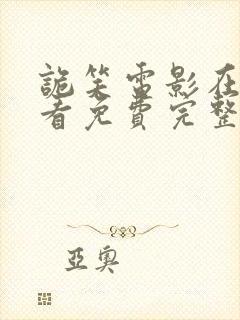 詭笑電影在
看免費完整
亞奧